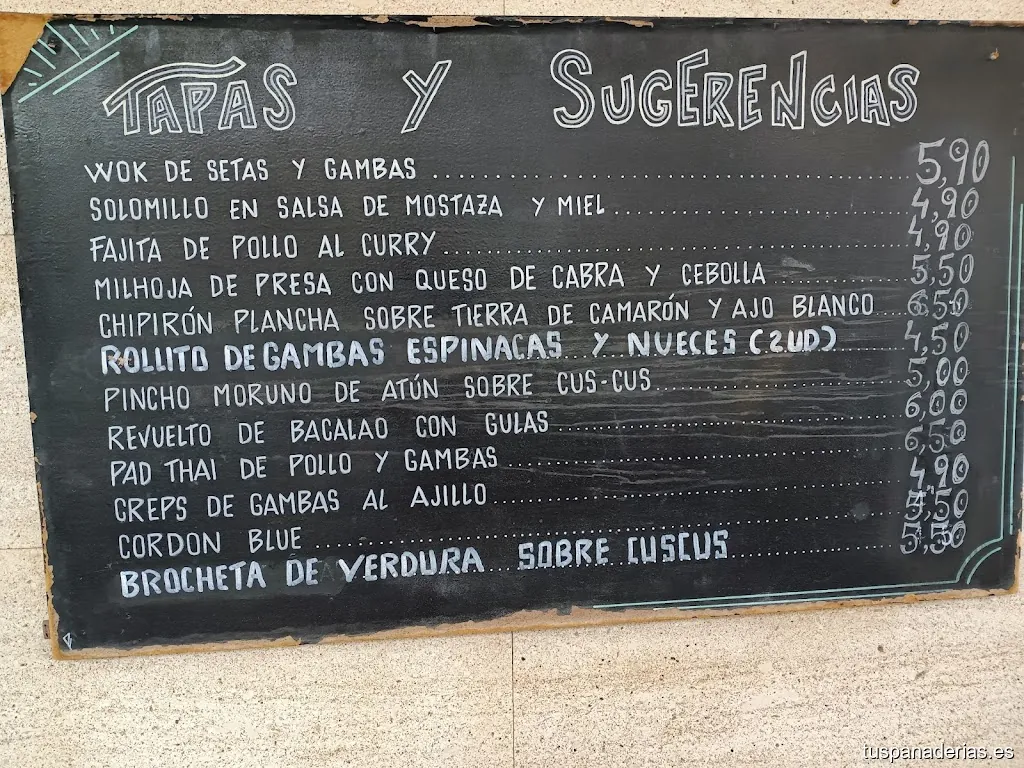 TAPAS Y SUGERENCIAS
WOK DE SETAS Y GAMBAS 5,90
SOLOMILLO EN SALSA DE MOSTAZA Y MIEL 4,90
FAJITA DE POLLO AL CURRY 4,90
MILHOJA DE PRESA CON QUESO DE CABRA Y CEBOLLA 5,50
CHIPIRÓN PLANCHA SOBRE TIERRA DE CAMARÓN Y AJO BLANCO 6,50
ROLLITO DE GAMBAS ESPINACAS Y NUECES (2UD) 4,50
PINCHO MORUNO DE ATÚN SOBRE CUS-CUS 5,00
REVUELTO DE BACALAO CON GULAS 6,00
PAD THAI DE POLLO Y GAMBAS 6,50
CREPS DE GAMBAS AL AJILLO 4,90
CORDON BLUE 5,50
BROCHETA DE VERDURA SOBRE CUSCUS 5,50
tuspanaderias.es